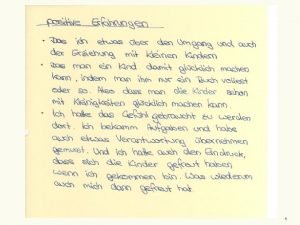 positive Erfahrungen
• Das ich etwas über den Umgang und auch
der Erziehung mit kleinen Kindern
• Das man ein Kind damit glücklich machen
kann, indem man ihm nur ein Buch vorliest
oder so. Also dass man die Kinder schon
mit Kleinigkeiten glücklich machen kann.
• Ich hatte das Gefühl gebraucht zu werden
dort. Ich bekamm Aufgaben und habe
auch etwas Verantwortung übernehmen
gemusst. Und ich hatte auch den Eindruck,
dass sich die Kinder gefreut haben
wenn ich gekommen bin. Was wiederum
auch mich dann gefreut hat.